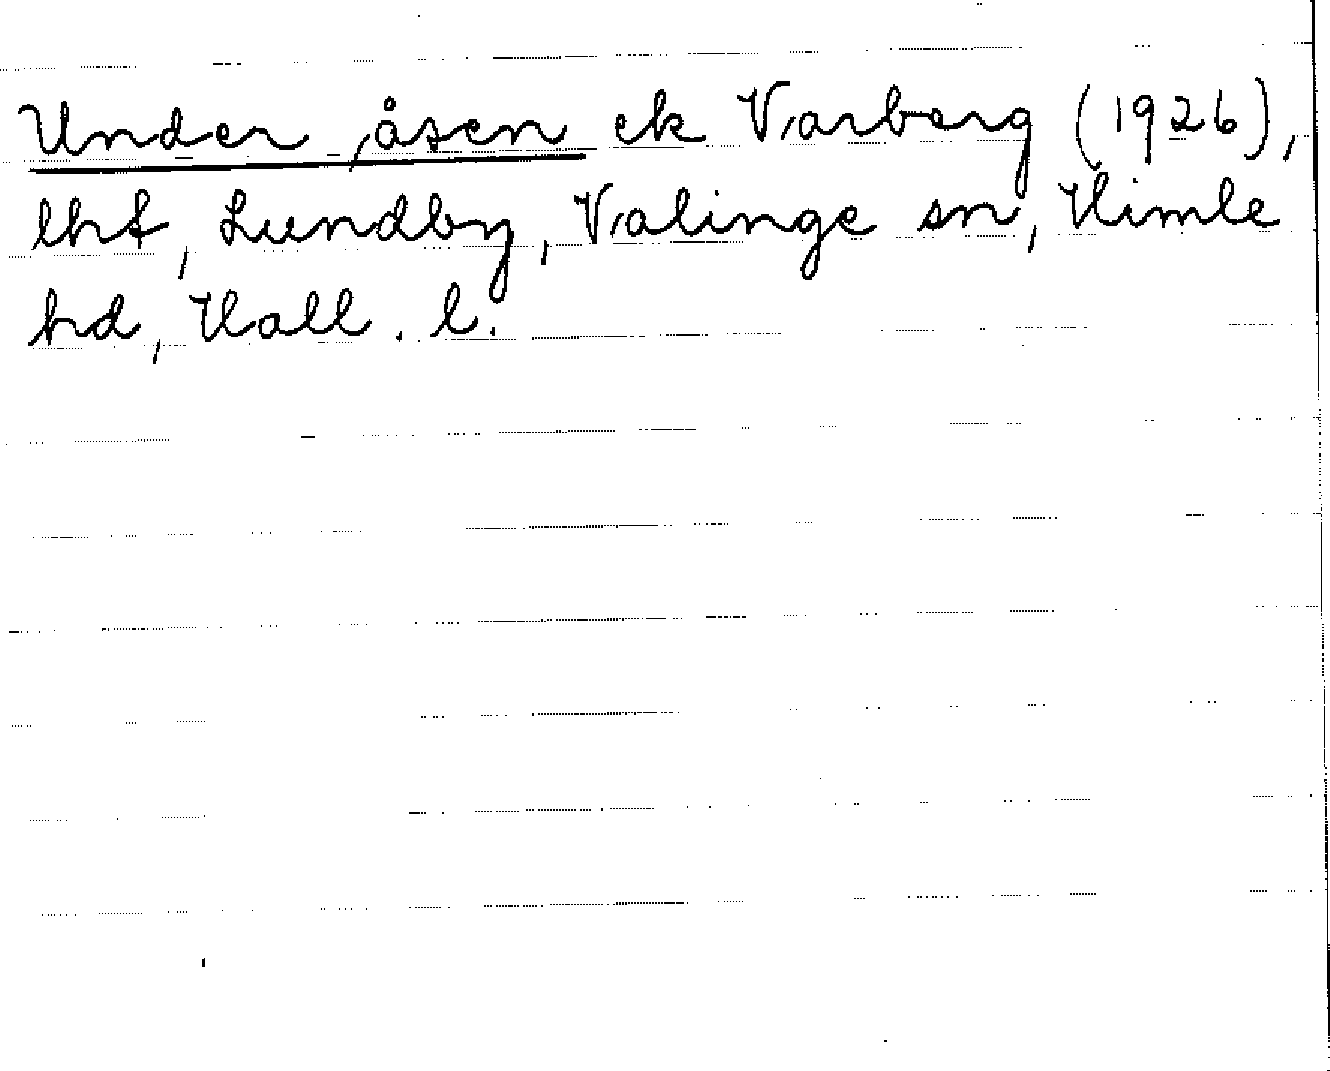 Under åsen ek Varberg (1926),
lht, Lundby, Valinge sn, Himle
hd, Hall. l.